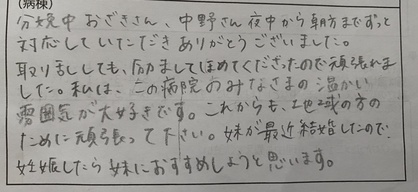 (病棟)
分娩中 おざきさん、中野さん 夜中から朝方までずっと
対応していただき ありがとうございました。
取り乱しても、励ましてほめてくださったので頑張れま
した。私は、この病院のみなさまの温かい
雰囲気が大好きです。これからも、地域の方の
ために頑張って下さい。妹が最近結婚したので、
妊娠したら妹におすすめしようと思います。